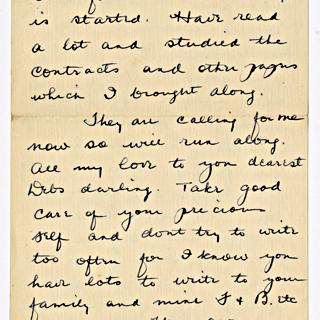 is started. Have read
a lot and studied the
contracts and other papers
which I brought along.
They are calling for me
now so will run along.
All my love to you dearest
Debs darling. Take good
care of your precious
self and dont try to write
too often for I know you
have lots to write to your
family and mine F & B. etc